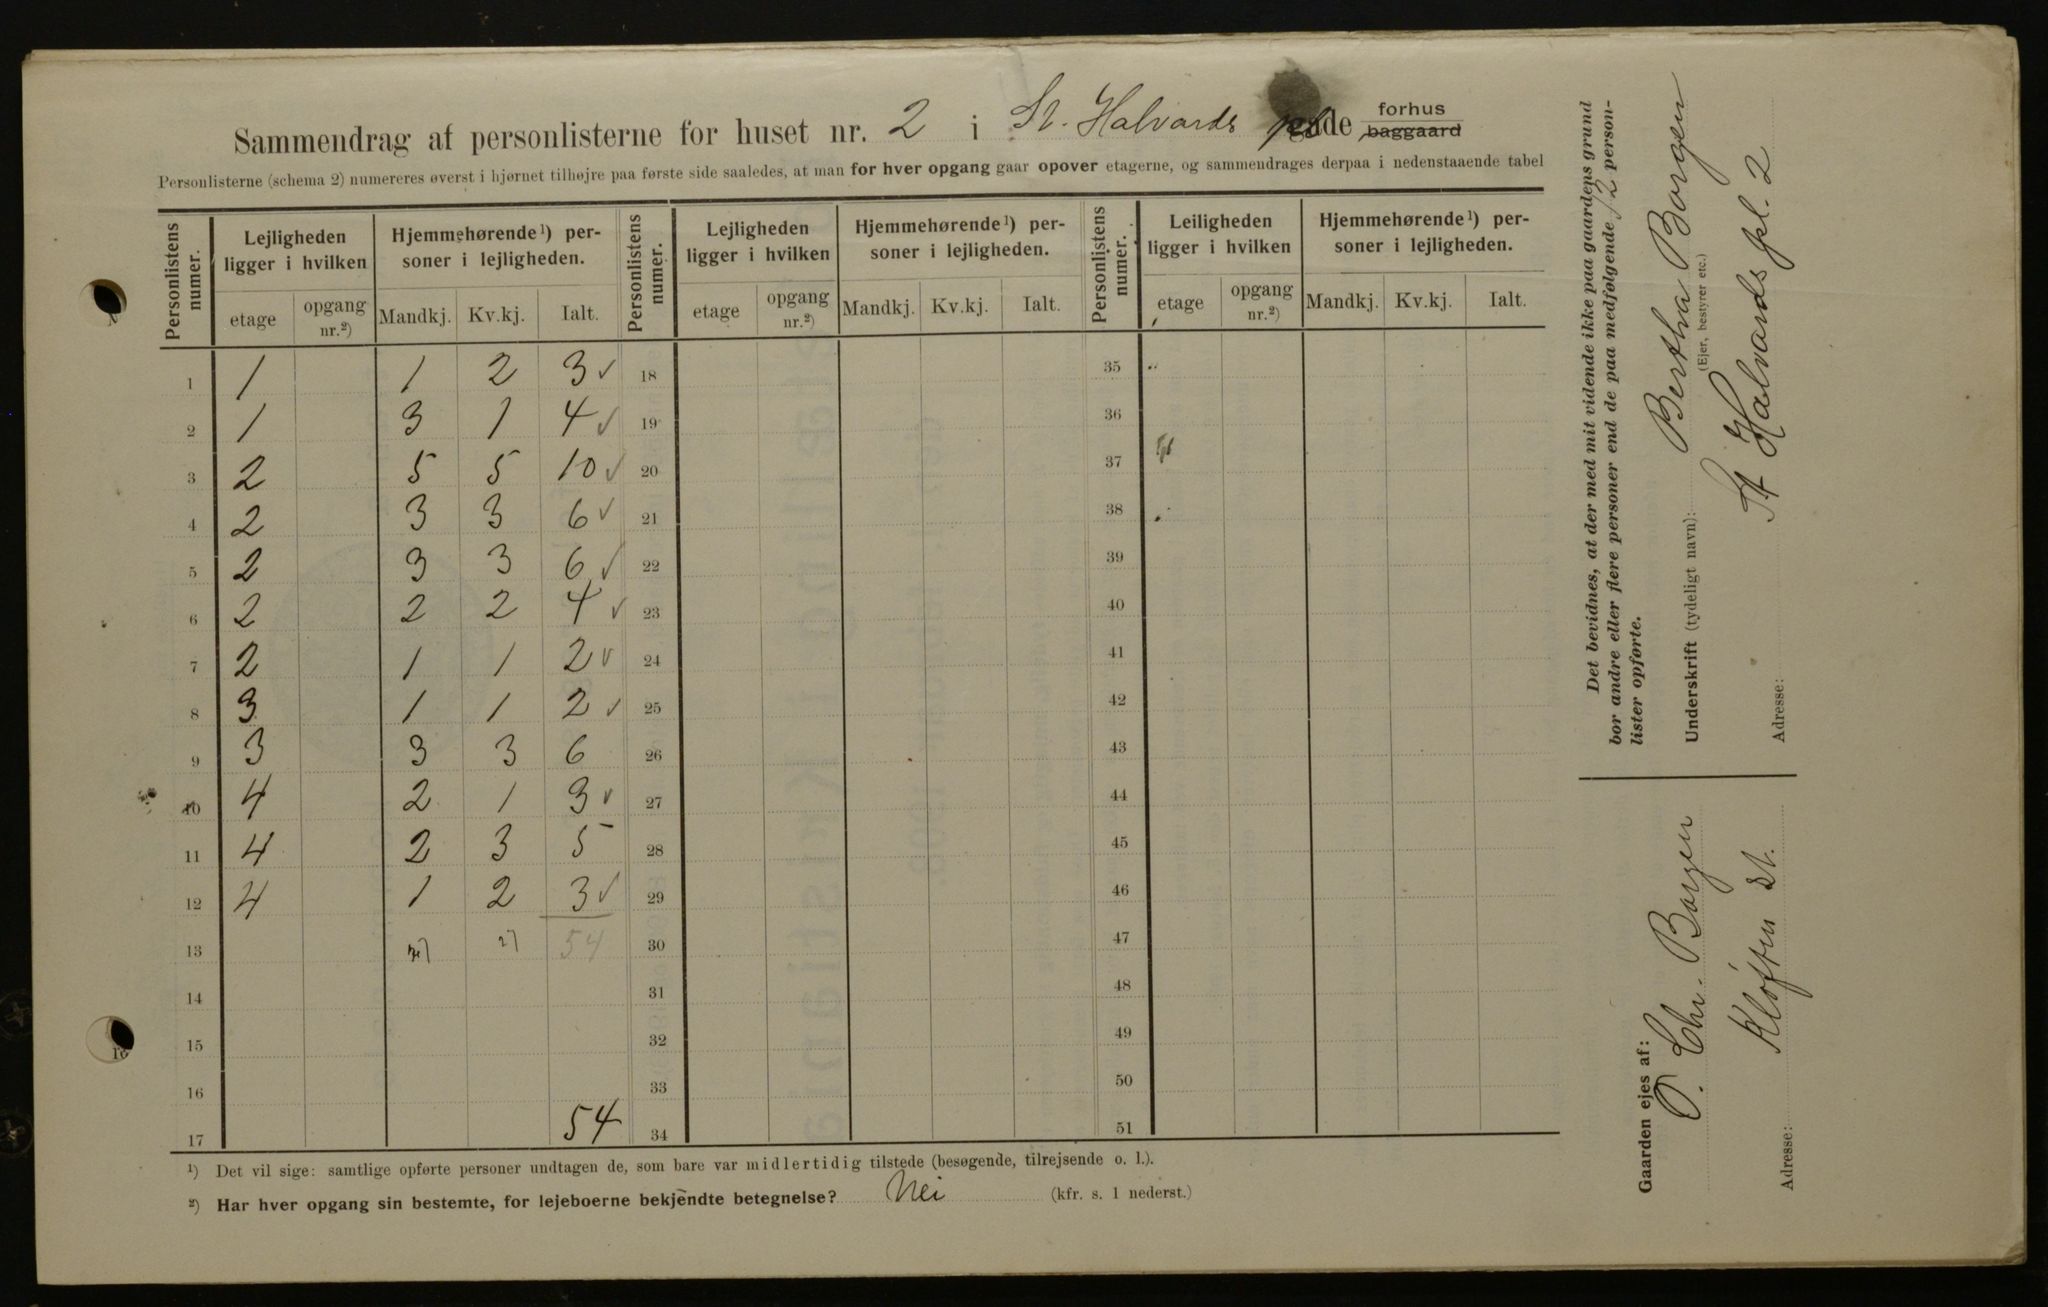 Sammendrag af personlisterne for huset nr. 2 i St. Halvards pl. gade forhus baggaard
Personlisterne (schema 2) numereres øverst i hjørnet tilhøjre paa første side saaledes, at man for hver opgang gaar opover etagerne, og sammendrages derpaa i nedenstaaende tabel
Personlistens numer. Lejligheden ligger i hvilken Hjemmehørende¹) personer i lejligheden. Personlistens numer. Lejligheden ligger i hvilken Hjemmehørende¹) personer i lejligheden. Personlistens numer. Leiligheden ligger i hvilken Hjemmehørende¹) personer i lejligheden.
etage opgang nr.²) Mandkj. Kv.kj. Ialt. etage opgang nr.²) Mandkj. Kv.kj. Ialt. etage opgang nr.²) Mandkj. Kv.kj. Ialt.
1 1 1 2 3 ✓ 18 35
2 1 3 1 4 ✓ 19 36
3 2 5 5 10 ✓ 20 37
4 2 3 3 6 ✓ 21 38
5 2 3 3 6 ✓ 22 39
6 2 2 2 4 ✓ 23 40
7 2 1 1 2 ✓ 24 41
8 3 1 1 2 ✓ 25 42
9 3 3 3 6 26 43
10 4 2 1 3 ✓ 27 44
11 4 2 3 5 28 45
12 4 1 2 3 ✓ 29 46
13 27 54 30 47
14 31 48
15 32 49
16 33 50
17 54 34 51
¹) Det vil sige: samtlige opførte personer undtagen de, som bare var midlertidig tilstede (besøgende, tilrejsende o. l.).
²) Har hver opgang sin bestemte, for lejeboerne bekjendte betegnelse? Nei (kfr. s. 1 nederst.)
Det bevidnes, at der med mit vidende ikke paa gaardens grund
bor andre eller flere personer end de paa medfølgende 12 person-
lister opførte.
Underskrift (tydeligt navn): Bertha Borgen
(Ejer, bestyrer etc.)
Adresse: St Halvards pl. 2
Gaarden ejes af:
O. Chr. Borgen
Adresse: Kløften St.